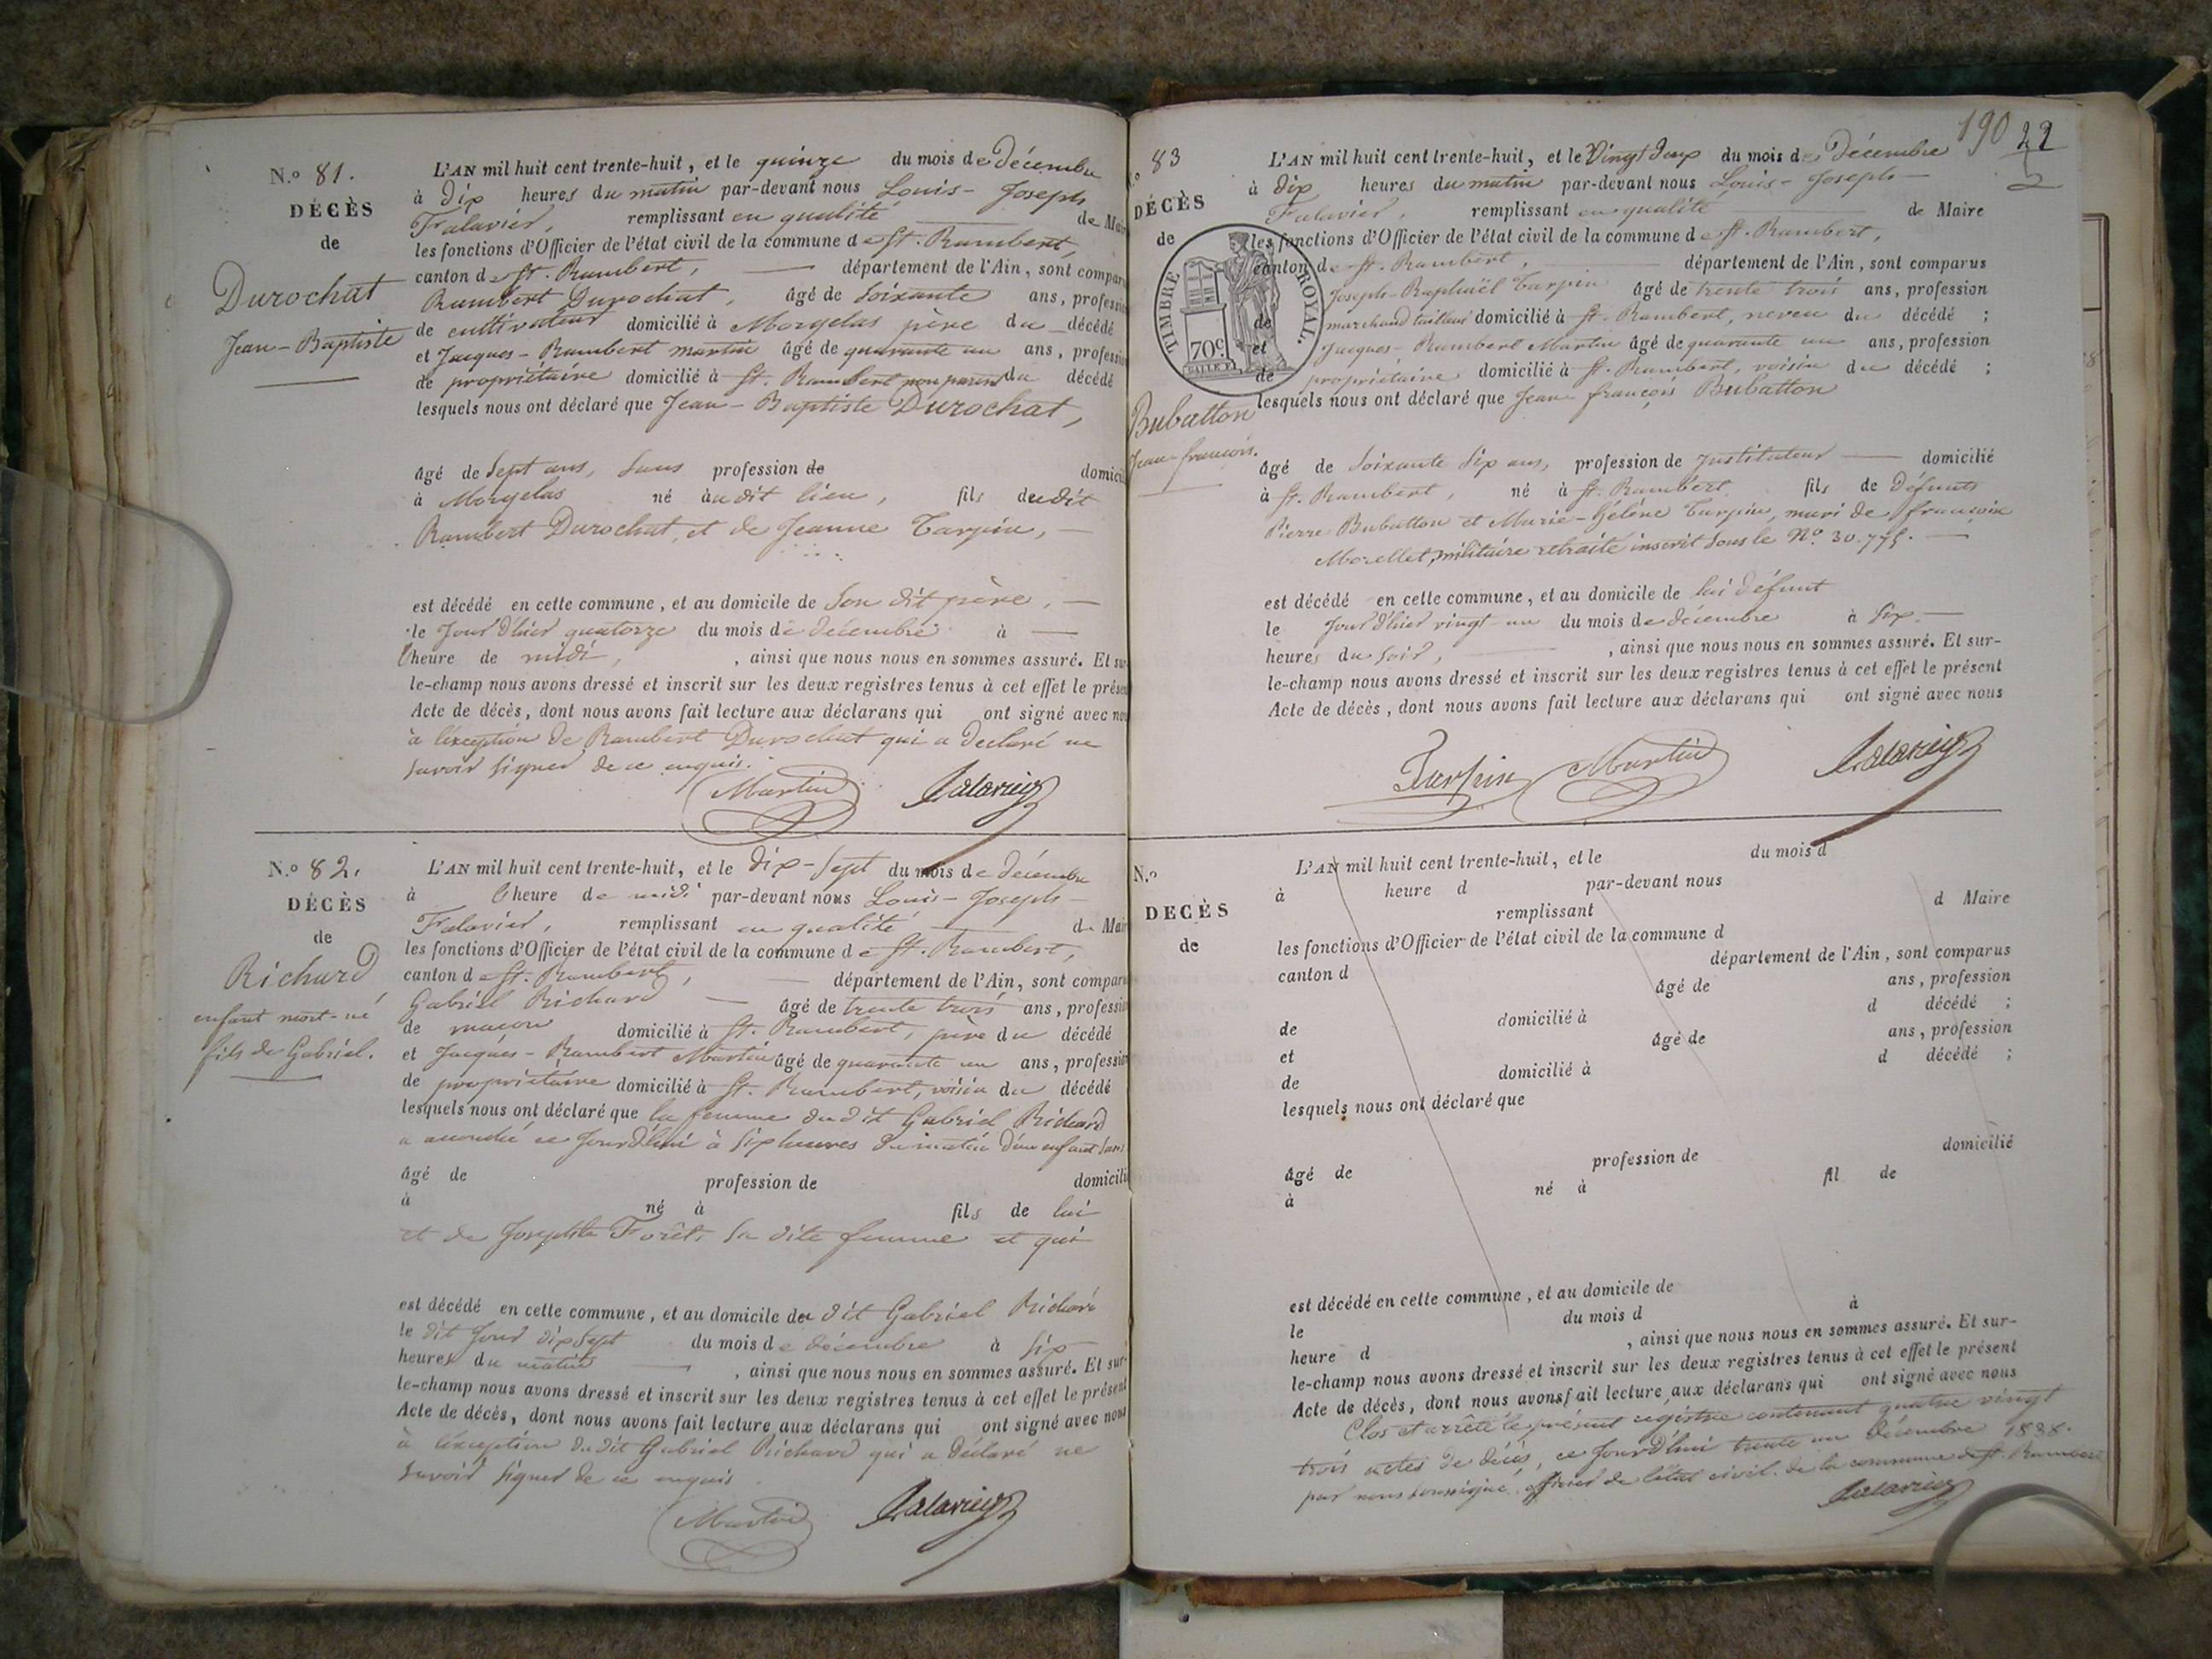 N.o 81.
DÉCÈS
de
Durochat
Jean-Baptiste
L'AN mil huit cent trente-huit, et le quinze du mois de décembre
à dix heures du matin par-devant nous Louis-Joseph
Falavier, remplissant en qualité de Mai
les fonctions d'Officier de l'état civil de la commune de St. Rambert,
canton de St. Rambert, département de l'Ain, sont compar
Rambert Durochat, âgé de soixante ans, professi
de cultivateur domicilié à Morgelas père du décédé
et Jacques-Rambert martin âgé de quarante un ans, professi
de propriétaire domicilié à St. Rambert non parent du décédé
lesquels nous ont déclaré que Jean-Baptiste Durochat,
âgé de Sept ans, Sans profession de domici
à Morgelas né audit lieu, fils dudit
Rambert Durochat, et de Jeanne Tarpin,
est décédé en cette commune, et au domicile de Son dit père,
le Jour d'hier quatorze du mois de décembre à
l'heure de midi, , ainsi que nous nous en sommes assuré. Et su
le-champ nous avons dressé et inscrit sur les deux registres tenus à cet effet le prése
Acte de décès, dont nous avons fait lecture aux déclarans qui ont signé avec no
à l'exception de Rambert Durochat qui a declaré ne
Savoir Signer de ce enquis.
Martin Falavier
N.o 82.
DÉCÈS
de
Richard
enfant mort-né
fils de Gabriel.
L'AN mil huit cent trente-huit, et le dix-Sept du mois de décembre
à l'heure de midi par-devant nous Louis-Joseph
Falavier, remplissant en qualité de Mai
les fonctions d'Officier de l'état civil de la commune de St. Rambert,
canton de St. Rambert, département de l'Ain, sont compar
Gabriel Richard âgé de trente trois ans, professi
de maçon domicilié à St. Rambert, père du décédé
et Jacques-Rambert Martin âgé de quarante un ans, professi
de propriétaire domicilié à St. Rambert, voisin du décédé
lesquels nous ont déclaré que la femme dudit Gabriel Richard
a accouché ce Jourd'hui à Six heures du matin d'un enfant Sans
âgé de profession de domicili
à né à fils de lui
et de Josephte Forêt, Sa dite femme et qui
est décédé en cette commune, et au domicile du dit Gabriel Richard
le dit Jour dix Sept du mois de décembre à Six
heures du matin , ainsi que nous nous en sommes assuré. Et sur-
le-champ nous avons dressé et inscrit sur les deux registres tenus à cet effet le présent
Acte de décès, dont nous avons fait lecture aux déclarans qui ont signé avec nous
à l'exception dudit Gabriel Richard qui a déclaré ne
Savoir Signer de ce enquis
Martin Falavier
190 22
N.o 83
DÉCÈS
de
TIMBRE ROYAL.
70c.
Bubatton
Jean-françois.
L'AN mil huit cent trente-huit, et le Vingt deux du mois de Décembre
à dix heures du matin par-devant nous Louis-Joseph
Falavier, remplissant en qualité de Maire
les fonctions d'Officier de l'état civil de la commune de St. Rambert,
canton de St. Rambert, département de l'Ain, sont comparus
Joseph-Raphaël Tarpin âgé de trente trois ans, profession
de marchand tailleur domicilié à St. Rambert, neveu du décédé ;
et Jacques-Rambert Martin âgé de quarante un ans, profession
de propriétaire domicilié à St. Rambert, voisin du décédé ;
lesquels nous ont déclaré que Jean-françois Bubatton
âgé de Soixante Six ans, profession de Instituteur domicilié
à St. Rambert, né à St. Rambert, fils de Défunts
Pierre Bubatton et Marie-Hélène Tarpin, mari de françoise
Morellet, militaire retraité inscrit Sous le No. 30.775.
est décédé en cette commune, et au domicile de lui défunt
le Jour d'hier vingt-un du mois de décembre à Six
heures du Soir, , ainsi que nous nous en sommes assuré. Et sur-
le-champ nous avons dressé et inscrit sur les deux registres tenus à cet effet le présent
Acte de décès, dont nous avons fait lecture aux déclarans qui ont signé avec nous
Tarpin Martin Falavier
N.o
DÉCÈS
de
L'AN mil huit cent trente-huit, et le du mois d
à heure d par-devant nous
remplissant d Maire
les fonctions d'Officier de l'état civil de la commune d
canton d département de l'Ain, sont comparus
âgé de ans, profession
de domicilié à d décédé ;
et âgé de ans, profession
de domicilié à d décédé ;
lesquels nous ont déclaré que
âgé de profession de domicilié
à né à fil de
est décédé en cette commune, et au domicile de
le du mois d à
heure d , ainsi que nous nous en sommes assuré. Et sur-
le-champ nous avons dressé et inscrit sur les deux registres tenus à cet effet le présent
Acte de décès, dont nous avons fait lecture aux déclarans qui ont signé avec nous
Clos et arrêté le présent registre contenant quatre vingt
trois actes de décès, ce Jourd'hui trente un Décembre 1838.
par nous soussigné officier de l'état civil de la commune de St. Rambert
Falavier